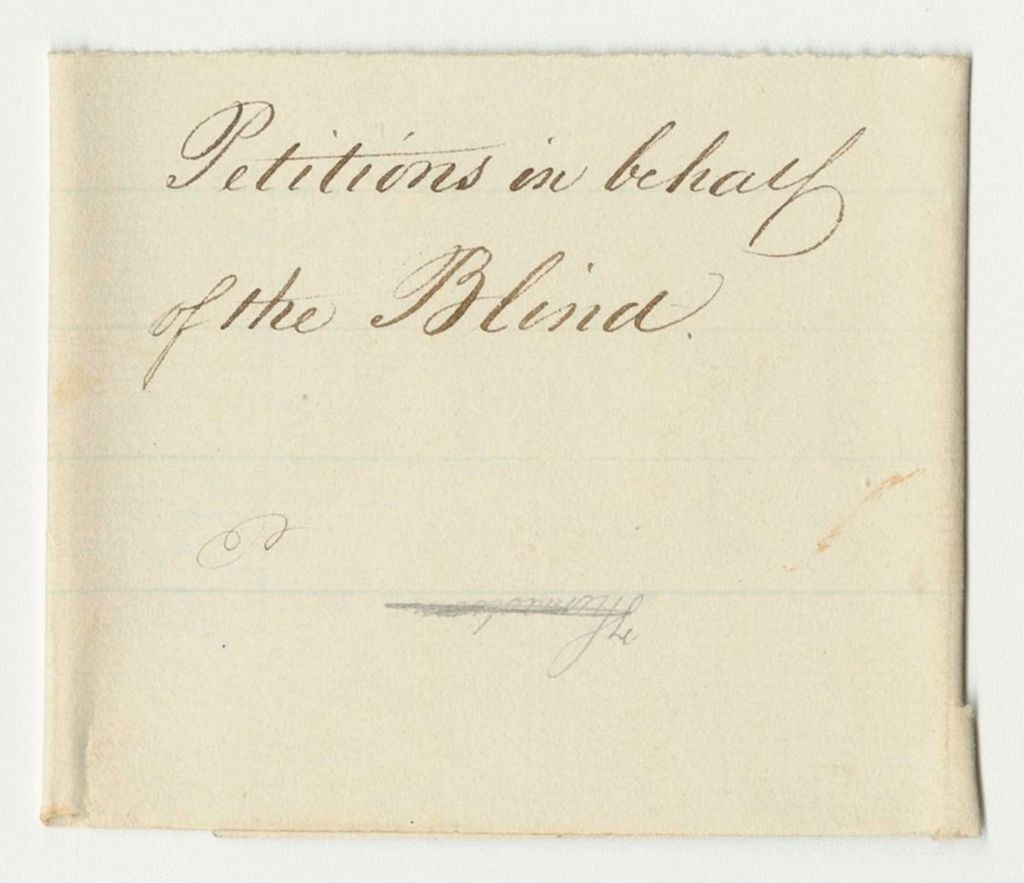 Petitions in behalf
of the Blind.